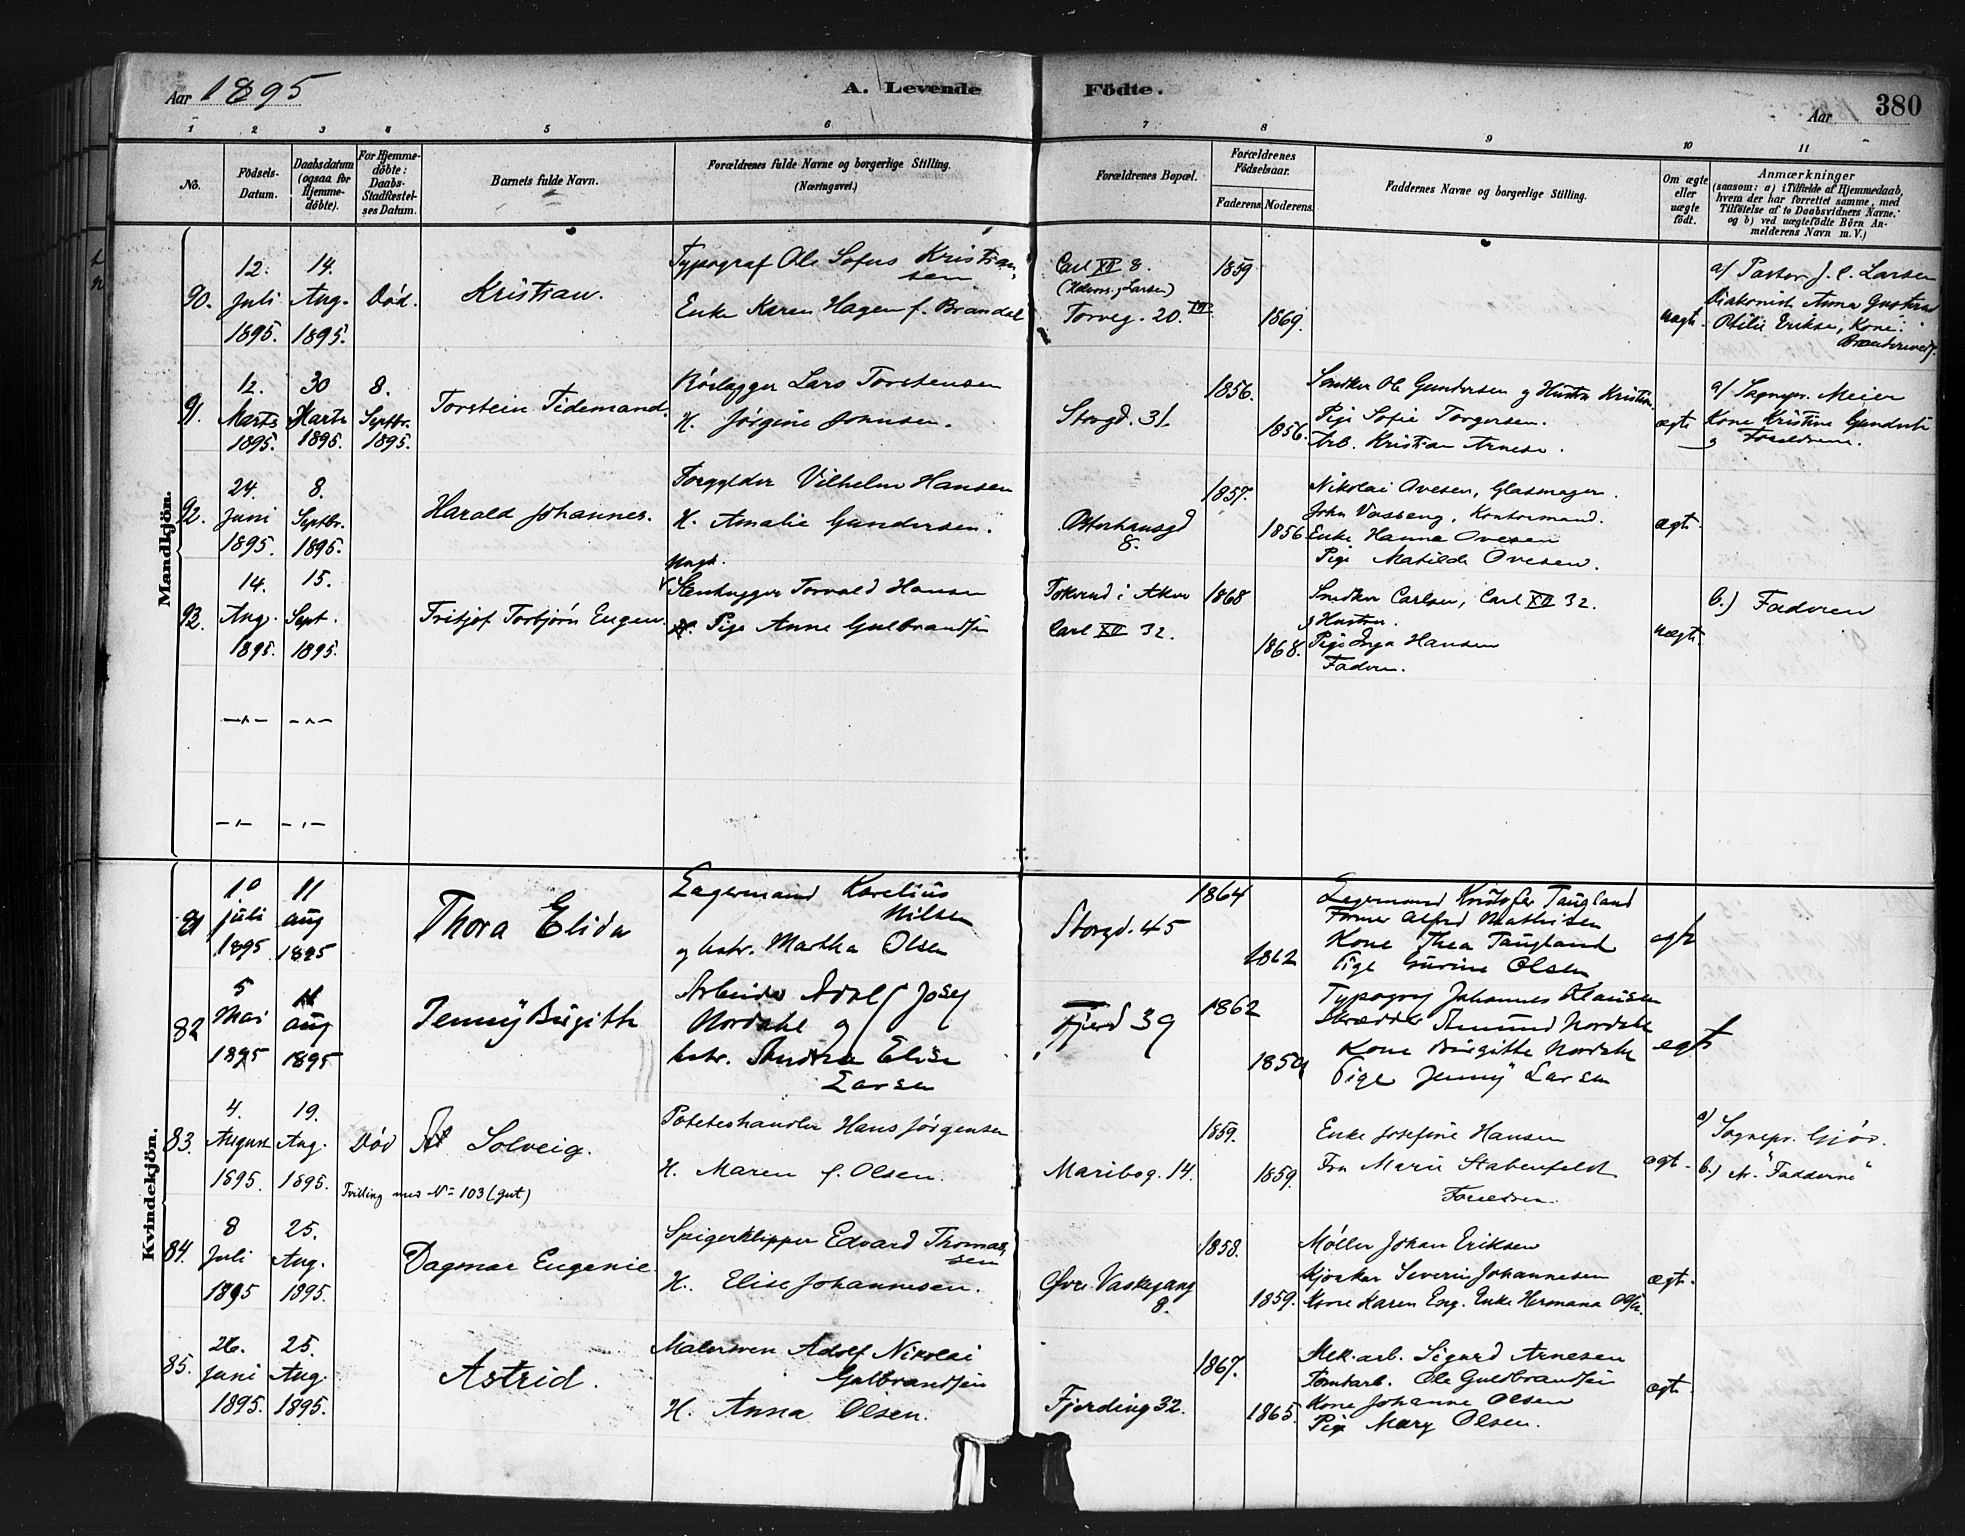 Aar 1895
A. Levende Födte.
Aar
380
1 2 3 4 5 6 7 8 9 10 11
No.
Födsels-Datum.
Daabsdatum (ogsaa for Hjemme-döbte).
For Hjemme-döbte: Daabs-Stadfæstel-ses Datum.
Barnets fulde Navn.
Forældrenes fulde Navne og borgerlige Stilling. (Næringsvei.)
Forældrenes Bopæl.
Forældrenes Födselsaar.
Faderens. Moderens.
Faddernes Navne og borgerlige Stilling.
Om ægte eller uægte födt.
Anmærkninger
(saasom: a) i Tilfælde af Hjemmedaab,
hvem der har forrettet samme, med
Tilföielse af to Daabsvidners Navne.
og b) ved uægtefödte Börn An-
melderens Navn m. V.)
Mandkjön.
90.
12. Juli 1895.
14. Aug. 1895.
Död.
Kristian.
Typograf Ole Sofus Kristian-
sen
Enke Karen Hagen f. Brandal
Carl XII 8.
Torvg. 20. III
1859
1869.
uægte.
a/ Pastor J. C. Larsen
Diakonisse Anna
Otilie Kone
91.
12. Marts 1895.
30 Marts 1895.
8. Septbr. 1895.
Torstein Tidemand.
Rörlægger Lars Torstensen
H. Jörgine Johnsen.
Storgd. 31.
1856.
1856.
Snedker Ol. Gundersen og Hustru Kristine.
Pige Sofie Torgersen.
Arb. Kristian Arnesen.
ægte
a/ Sognepr. Meier
Kone Kristine Gundersen
og Forældrene.
92.
24. Juni 1895.
8. Septbr. 1895.
Harald Johannes.
Forgylder Vilhelm Hansen
H. Amalie Gundersen.
Osterhausgd
8.
1857.
1856
Nikolai Ovesen, Glasmager.
John Vasseng, Kontormand.
Enke Hanna Ovesen
Pige Matilde Ovesen.
ægte
93.
14. Aug. 1895.
15. Sept. 1895.
Fritjof Torbjörn Eugen.
Ungk.
Stenhugger Torvald Hansen
Pige Anne Gulbrandsen
i Aker
Carl XII 32.
1868
1868.
Snedker Carlsen, Carl XII 32.
og Hustru.
Pige Inga Hansen
Faderen.
uægte.
b.) Faderen
Kvindekjön.
81
10 juli 1895
11 aug 1895
Thora Elida
Lagermand Karelius
Nilsen
og hstr. Martha Olsen
Storgd. 45
1864
1862
Lagermand Kristofer Taugland
Former Alfred Mathisen
Kone Thea Taugland
Pige Gurine Olsen
egte
82
5 Mai 1895
11 aug 1895
Jenny Birgitte
Arbeider Adolf Josef
Nordahl og
hstr. Andrea Elise
Larsen
Fjerd 39
1862
1859
Typograf Johannes Klausen
Skrædder Amund Nordahl
Kone Birgitte Nordahl
Pige Jenny Larsen
egte
83.
4. August 1895.
19. Aug. 1895.
Död
Solveig.
Tvilling med No 103 (gut)
Poteteshandler Hans Jörgensen
H. Maren f. Olsen.
Maribog. 14.
1859.
1859.
Enke Josefine Hansen
Fru Marie Stabenfeldt
Forældrene
ægte.
a) Sognepr. Gjör.
b.) "Fadderne"
84.
8 Juli 1895
25. Aug. 1895.
Dagmar Eugenie
Spigerklipper Edvard Thomas-
sen
H. Elise Johannesen.
Övre Vaskegang
8.
1858.
1859.
Møller Johan Eriksen
Severin Johannesen
Kone Karen Eng. Enke Hermana Olsen.
ægte.
85.
26. Juni 1895.
25. Aug. 1895.
Astrid.
Malersven Adolf Nikolai
Gulbrandsen
H. Anna Olsen.
Fjerding 32.
1867.
1865.
Mek. arb. Sigurd Arnesen
Tomtarb. Ole Guldbrandsen
Kone Johanne Olsen
Pige Mary Olsen.
ægte.